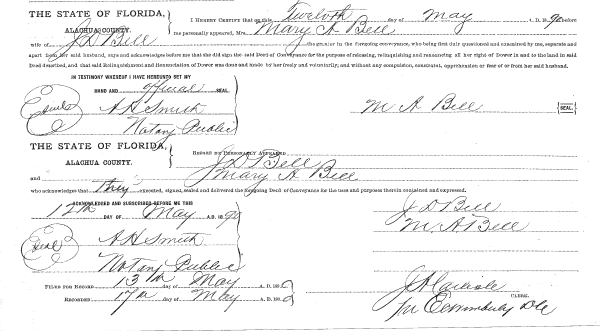 THE STATE OF FLORIDA,
ALACHUA COUNTY.
I HEREBY CERTIFY that on this Twelvth day of May A. D. 1890 before
me personally appeared, Mrs. Mary A Bell
wife of J D Bell the grantor in the foregoing conveyance, who being first duly questioned and examined by me, separate and
apart from her said husband, says and acknowledges before me that she did sign the said Deed of Conveyance for the purpose of releasing, relinquishing and renouncing all her right of Dower in and to the land in said
Deed described, and that said Relinquishment and Renunciation of Dower was done and made by her freely and voluntarily; and without any compulsion, constraint, apprehension or fear of or from her said husband.
IN TESTIMONY WHEREOF I HAVE HEREUNTO SET MY
HAND AND official SEAL.
Seal
A H Smith
Notary Public
M A Bell
SEAL.
THE STATE OF FLORIDA,
ALACHUA COUNTY.
BEFORE ME PERSONALLY APPEARED
J D Bell
and Mary A Bell
who acknowledges that they executed, signed, sealed and delivered the foregoing Deed of Conveyance for the uses and purposes therein contained and expressed.
ACKNOWLEDGED AND SUBSCRIBED BEFORE ME THIS
12th DAY OF May A. D. 1890
Seal
A H Smith
Notary Public
J D Bell
M. A Bell
FILED FOR RECORD 13th day of May A. D. 1890
RECORDED 17th day of May A. D. 1890
J A Carlisle
CLERK.